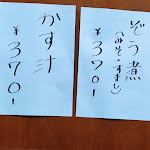 ぞう煮
(みそ・すまし)
¥370!
かす汁
¥370 !